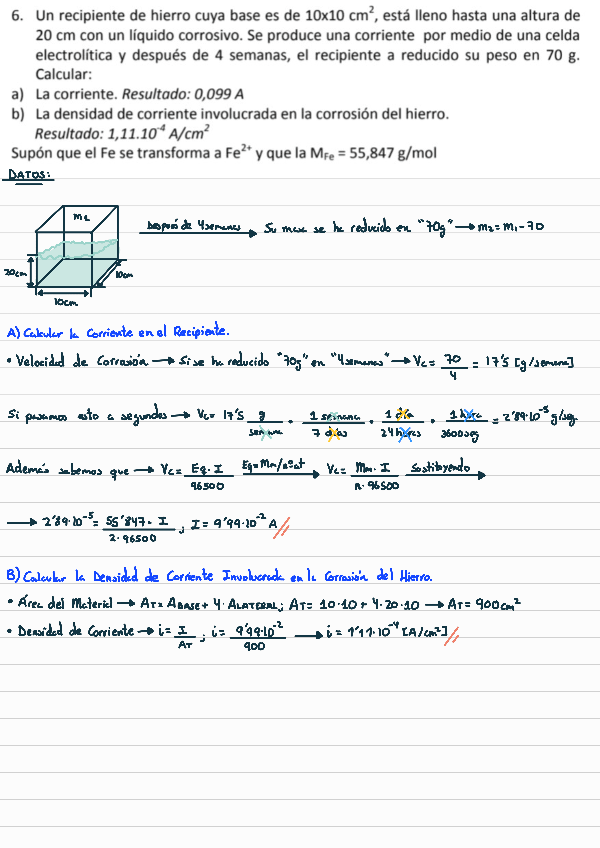 6. Un recipiente de hierro cuya base es de 10x10 cm², está lleno hasta una altura de
20 cm con un líquido corrosivo. Se produce una corriente por medio de una celda
electrolítica y después de 4 semanas, el recipiente a reducido su peso en 70 g.
Calcular:
a) La corriente. Resultado: 0,099 A
b) La densidad de corriente involucrada en la corrosión del hierro.
Resultado: 1,11.10⁻⁴ A/cm²
Supón que el Fe se transforma a Fe²⁺ y que la M_Fe = 55,847 g/mol
DATOS:
m₁
Después de 4 semanas → Su masa se ha reducido en "70g" → m₂ = m₁ - 70
20cm
10cm
10cm
A) Calcular la Corriente en el Recipiente.
• Velocidad de Corrosión → Si se ha reducido "70g" en "4 semanas" → Vc = 70/4 = 17'5 [g/semana]
Si pasamos esto a segundos → Vc = 17'5 g/semana · 1 semana/7 días · 1 día/24 horas · 1 hora/3600 seg = 2'89·10⁻⁵ g/seg
Además sabemos que → Vc = Eq. I/96500 Eq = Mm/nºat → Vc = Mm. I/n. 96500 Sustituyendo →
→ 2'89·10⁻⁵ = 55'847. I/2. 96500 ; I = 9'99·10⁻² A //
B) Calcular la Densidad de Corriente Involucrada en la Corrosión del Hierro.
• Área del Material → AT = ABASE + 4. ALATERAL; AT = 10·10 + 4·20·10 → AT = 900cm²
• Densidad de Corriente → i = I/AT ; i = 9'99·10⁻²/900 → i = 1'11·10⁻⁴ [A/cm²] //